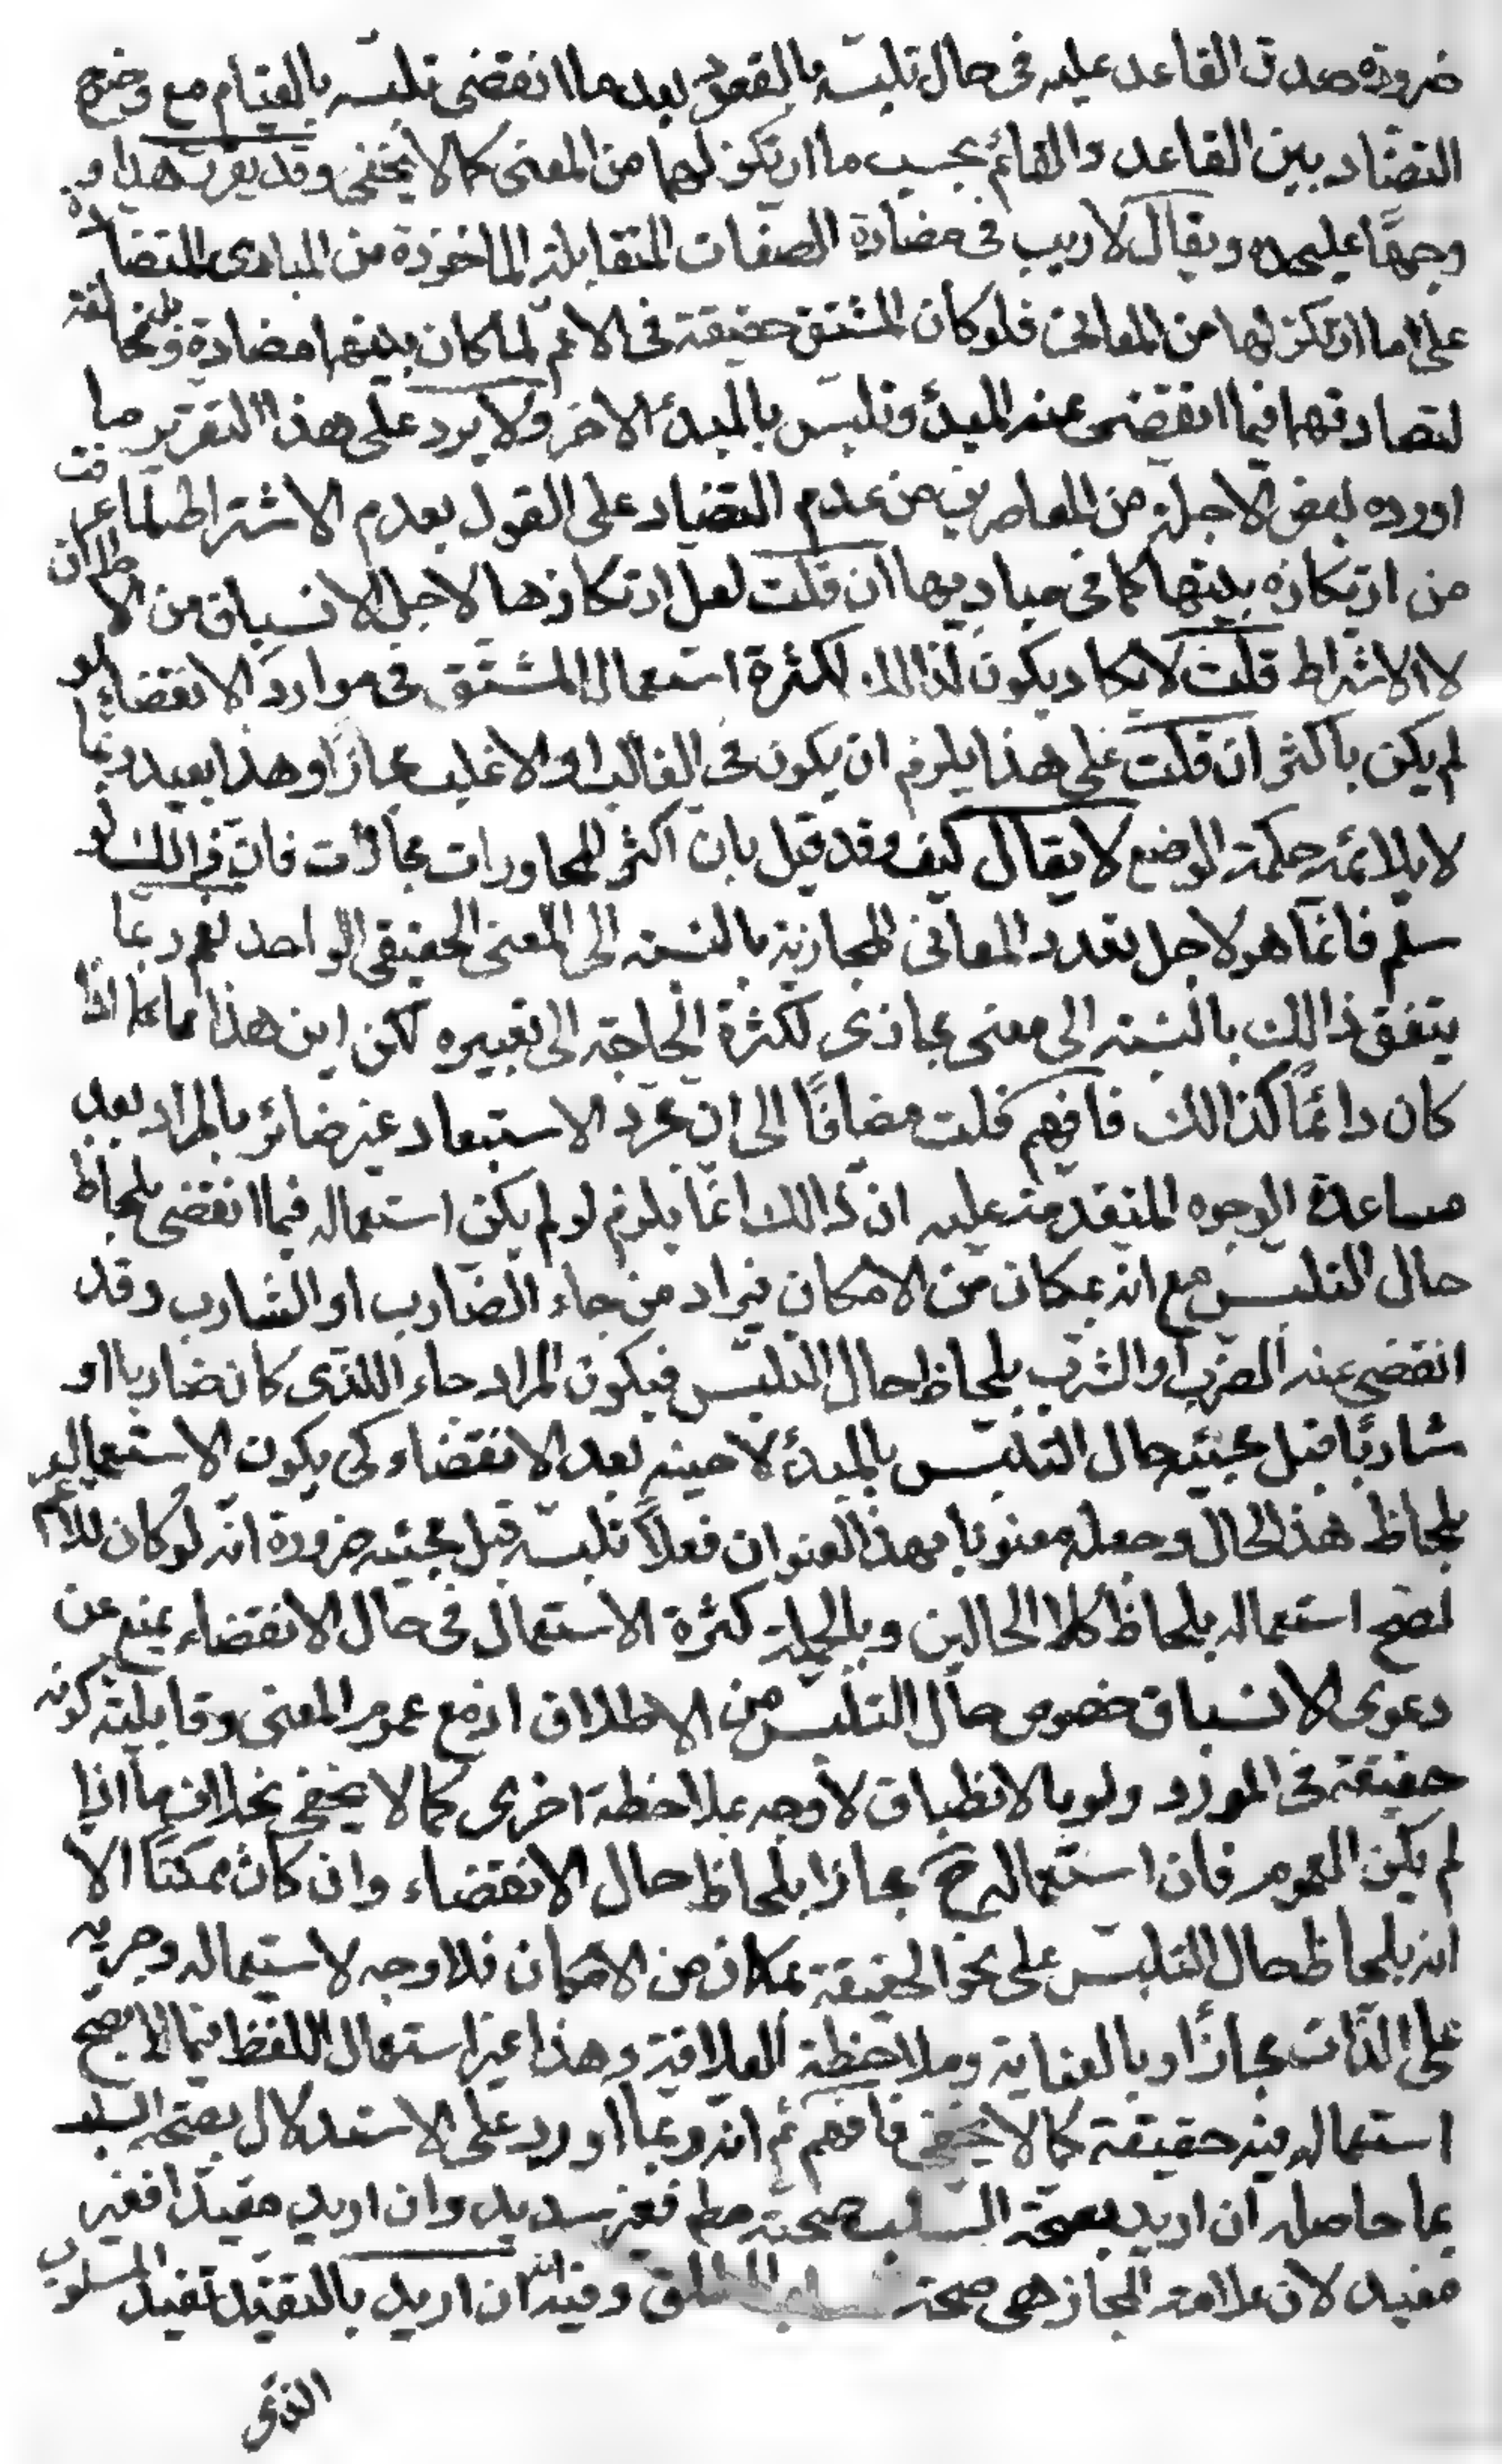 ضرورة صدق القاعد عليه فى حال تلبسه بالقعود بعد ما انقضى تلبسه بالقيام مع وضوح
التضاد بين القاعد والقائم بحسب ما ارتكز لهما من المعنى كما لا يخفى وقد يقرر هذا
وجهًا عليحده ويقال لا ريب فى مضادة الصفات المتقابلة الماخوذة من المبادى المتضادة
على ما ارتكز لها من المعانى فلو كان المشتق حقيقة فى الاعم لما كان بينها مضادة بل مخالفة
لتصادقها فيما انقضى عنه المبدء وتلبس بالمبدء الاخر ولا يرد على هذا التقرير ما
اورده بعض الاجلة من المعاصرين من عدم التضاد على القول بعدم الاشتراط لما عرفت
من ارتكازه بينها كما فى مباديها ان قلت لعل ارتكازها لاجل الانسباق من الاطلاق
لا الاشتراط قلت لا يكاد يكون لذالك لكثرة استعمال المشتق فى موارد الانقضاء لو
لم يكن باكثر ان قلت على هذا يلزم ان يكون فى الغالب او الاغلب مجازًا وهذا بعيد ربما
لا يلائمه حكمة الوضع لا يقال كيف وقد قيل بان اكثر المحاورات مجازات فان ذالك لو
سلم فانما هو لاجل تعدد المعانى المجازية بالنسبة الى المعنى الحقيقى الواحد نعم ربما
يتفق ذالك بالنسبة الى معنى مجازى لكثرة الحاجة الى تعبيره لكن اين هذا مما اذا
كان دائمًا كذالك فافهم قلت مضافًا الى ان مجرد الاستبعاد غير ضائر بالمراد بعد
مساعدة الوجوه المتقدمة عليه ان ذالك انما يلزم لو لم يكن استعماله فيما انقضى بلحاظ
حال التلبس مع انه بمكان من الامكان فيراد من جاء الضارب او الشارب وقد
انقضى عنه الضرب او الشرب بلحاظ حال التلبس فيكون المراد جاء اللذى كان ضاربا او
شاربًا قبل مجيئه حال التلبس بالمبدء لا حينه بعد الانقضاء كى يكون الاستعمال
بلحاظ هذا الحال وجعله معنونا بهذا العنوان فعلًا تلبسه قبل مجيئه ضرورة انه لو كان للاعم
لصح استعماله بلحاظ كلا الحالين وبالجملة كثرة الاستعمال فى حال الانقضاء يمنع عن
دعوى الانسباق خصوص حال التلبس من الاطلاق اذ مع عموم المعنى وقابلية كونه
حقيقة فى المورد ولو بالانطباق لا وجه بملاحظة اخرى كما لا يخفى بخلاف ما اذا
لم يكن العموم فان استعماله ح مجازا بلحاظ حال الانقضاء وان كان ممكنًا الا
انه بلحاظ حال التلبس على نحو الحقيقة بمكان من الامكان فلا وجه لاستعماله وجريه
على الذات مجازًا وبالعناية وملاحظة العلاقة وهذا غير استعمال اللفظ فيما لا يصح
استعماله فيه حقيقة كما لا يخفى فافهم ثم انه ربما اورد على الاستدلال بصحة السلب
بما حاصله ان اريد بصحة السلب صحته مطم فغير سديد وان اريد مقيدًا فغير
مفيد لان علامة المجاز هى صحة السلب المطلق وفيه انه ان اريد بالتقييد تقييد المسلوب
الذى